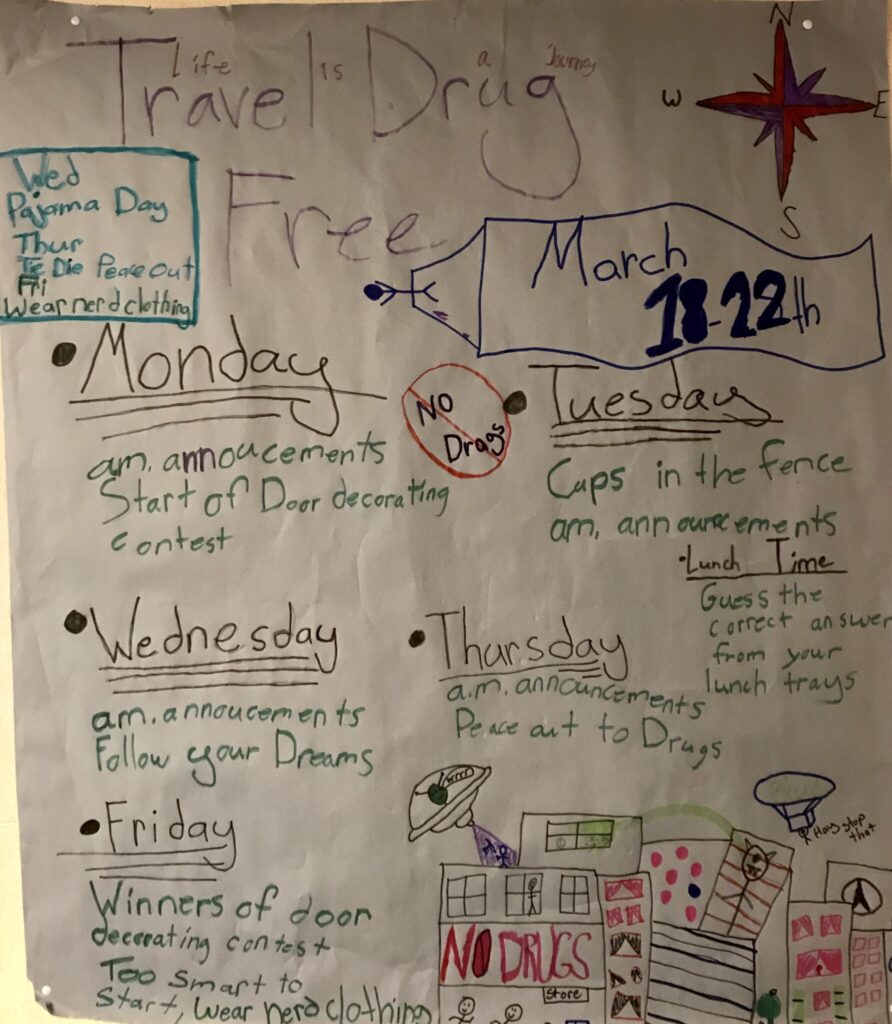 Life is a Journey
Travel Drug
Free
N
W E
S
Wed
Pajama Day
Thur
Tie Die Peace out
Fri
Wear nerd clothing
March
18-22th
Monday
am. annoucements
Start of Door decorating
contest
NO
Drags
Tuesday
Cups in the fence
am. announcements
Lunch Time
Guess the
correct answer
from your
lunch trays
Wednesday
am. annoucements
Follow your Dreams
Thursday
a.m. announcements
Peace out to Drugs
Friday
Winners of door
decorating contest
Too smart to
start, wear nerd clothing
Hay stop
that
NO DRUGS
Store